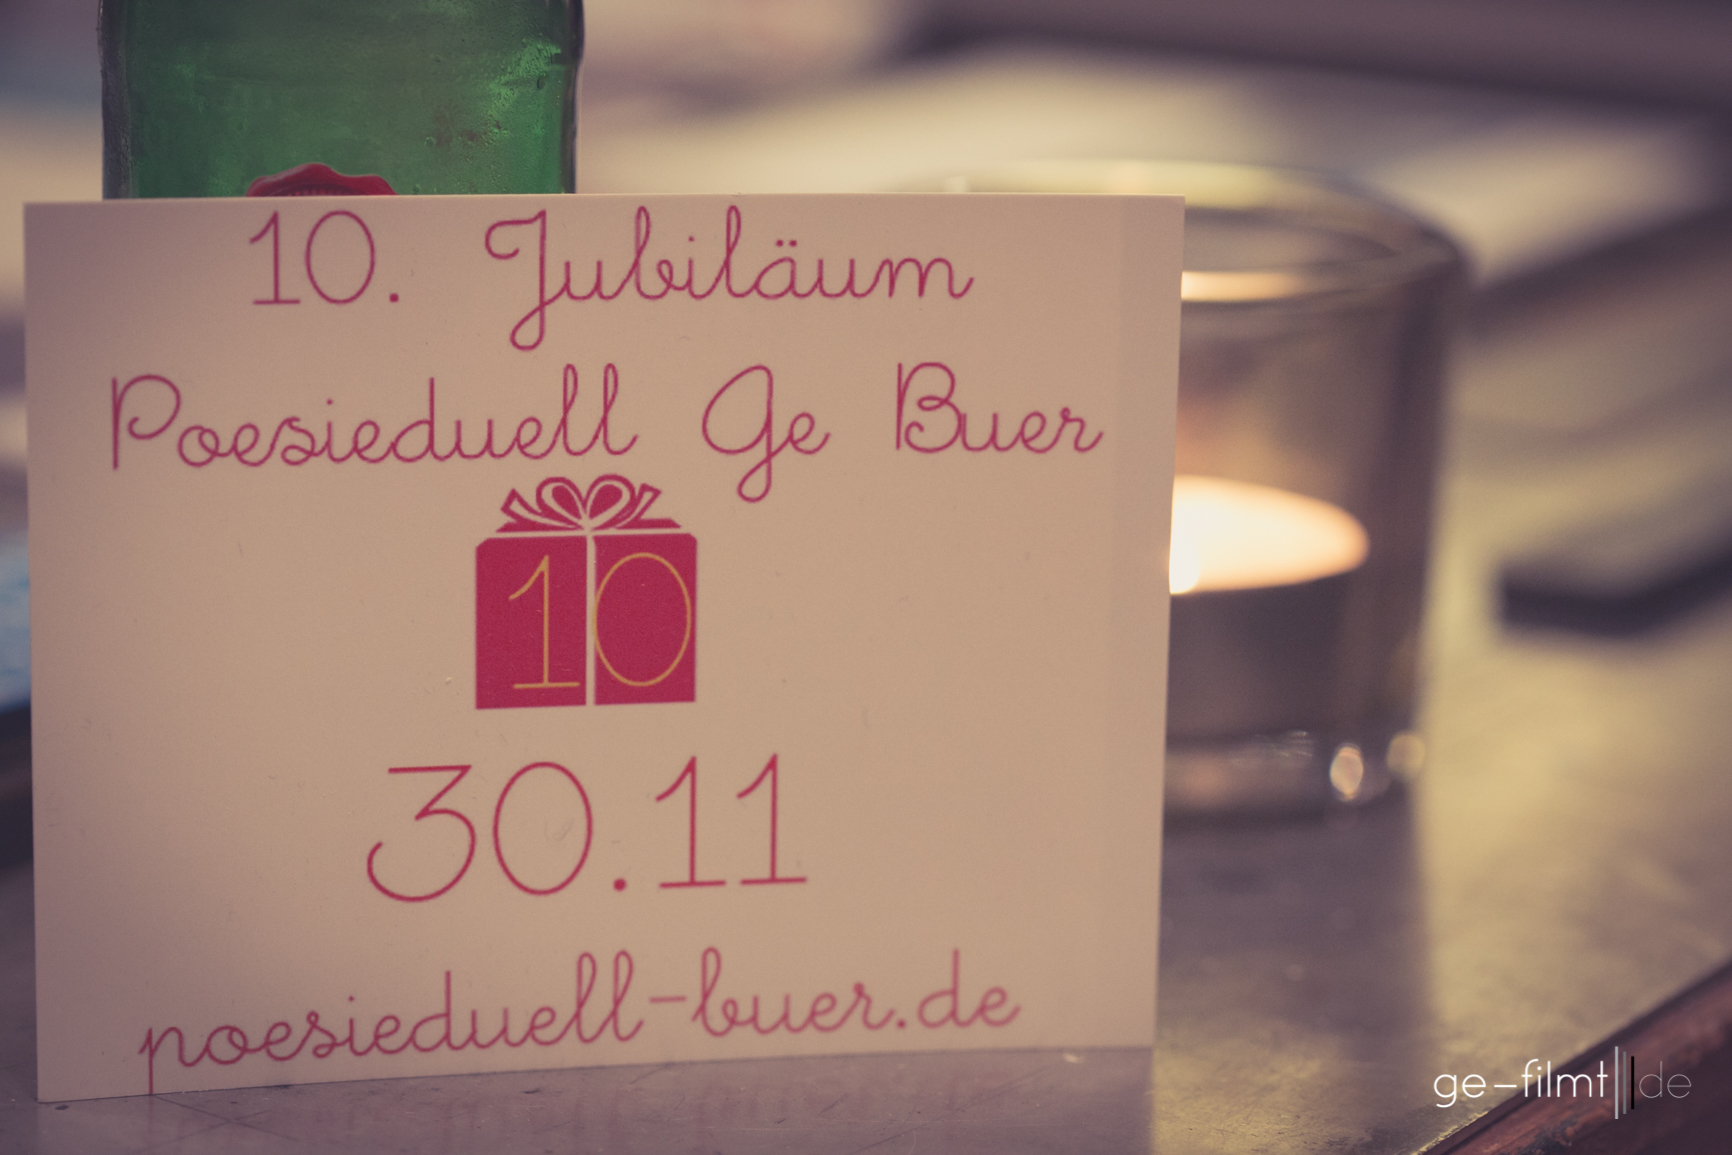 10. Jubiläum
Poesieduell Ge Buer
10
30.11
poesieduell-buer.de
ge-filmt|||de